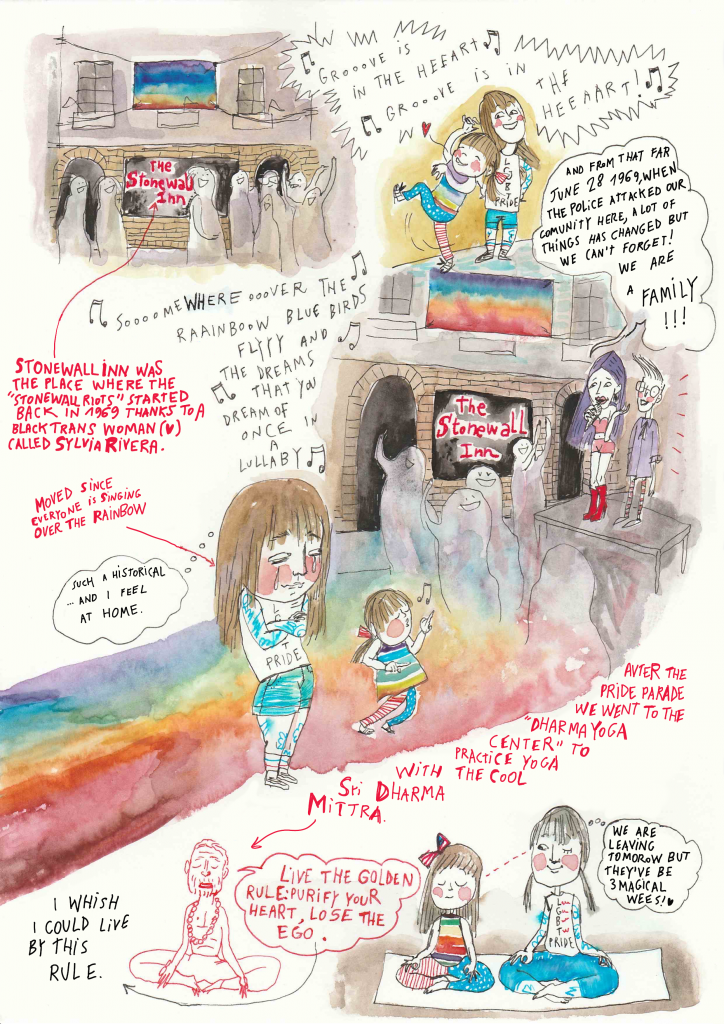 GROOOVE IS
IN THE HEEART
GROOOVE IS IN
THE
HEEAART!
The
Stonewall
Inn
L
G
B
T
PRIDE
AND FROM THAT FAR
JUNE 28 1969, WHEN
THE POLICE ATTACKED OUR
COMUNITY HERE, A LOT OF
THINGS HAS CHANGED BUT
WE CAN'T FORGET!
WE ARE
A FAMILY
!!!
SOOOOMEWHERE OOOVER THE
RAAINBOOW BLUE BIRDS
FLYYY AND
THE DREAMS
THAT YOU
DREAM OF
ONCE IN
A
LULLABY
STONEWALL INN WAS
THE PLACE WHERE THE
"STONEWALL RIOTS" STARTED
BACK IN 1969 THANKS TO A
BLACK TRANS WOMAN (♥)
CALLED SYLVIA RIVERA.
The
Stonewall
Inn
MOVED SINCE
EVERYONE IS SINGING
OVER THE RAINBOW
SUCH A HISTORICAL
... AND I FEEL
AT HOME.
T
PRIDE
AVTER THE
PRIDE PARADE
WE WENT TO THE
"DHARMA YOGA
CENTER" TO
PRACTICE YOGA
WITH THE COOL
SRI DHARMA
MITTRA.
LIVE THE GOLDEN
RULE: PURIFY YOUR
HEART, LOSE THE
EGO.
I WHISH
I COULD LIVE
BY THIS
RULE.
WE ARE
LEAVING
TOMOROW BUT
THEY'VE BE
3 MAGICAL
WEES! ♥
L
G
B
T
PRIDE